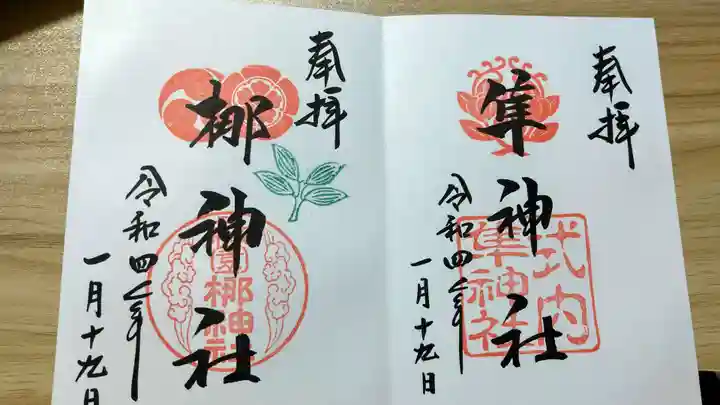 奉拝
隼神社
式内
隼神社
令和四年
一月十九日
奉拝
梛神社
梛神社
令和四年
一月十九日